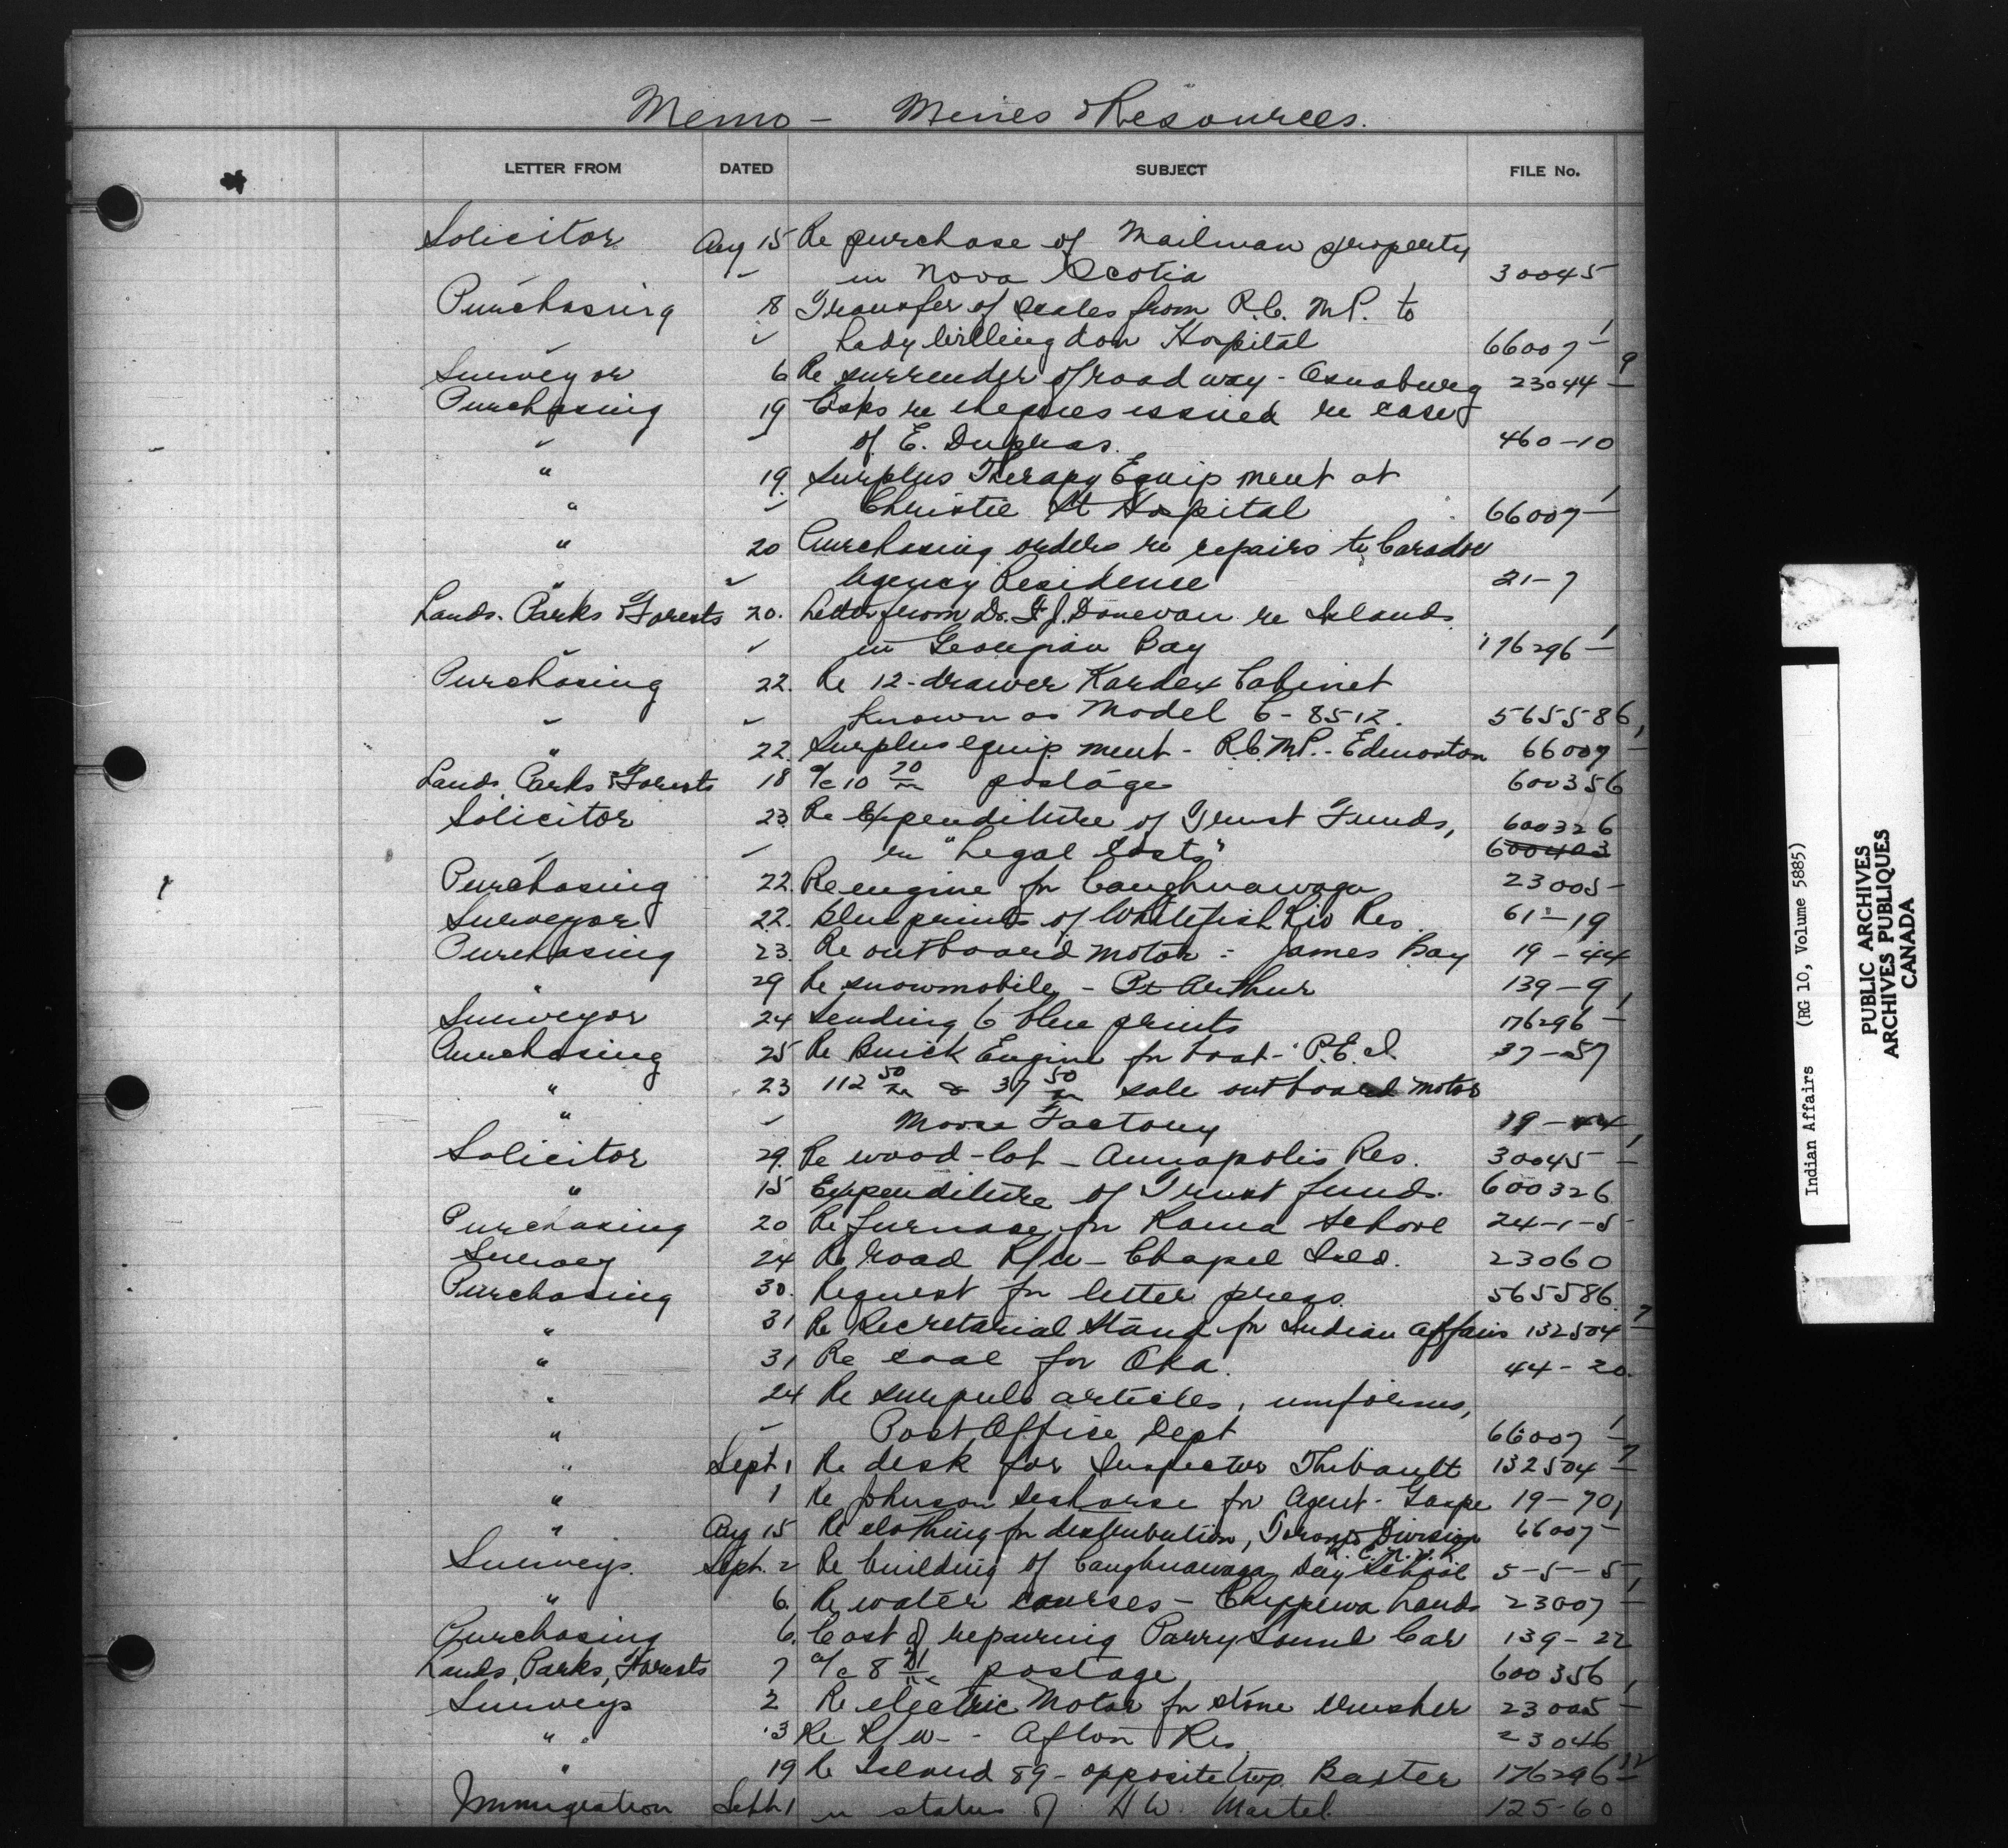 Memo - Mines & Resources.
LETTER FROM DATED SUBJECT FILE No.
Solicitor Aug 15 Re purchase of Mailman property
✓ in Nova Scotia 30045
Purchasing 18 Transfer of scales from R.C.M.P. to
✓ Lady Willingdon Hospital 66007-1
Surveyor 6 Re surrender of roadway - Osnaburg 23044-9
Purchasing 19 Asks re cheques issued re case
✓ of E. Dupras. 460-10
" 19. Surplus Therapy Equipment at
" ✓ Christie St Hospital 66007-1
" 20 Purchasing orders re repairs to Caradoc
" ✓ Agency Residence 21-7
Lands. Parks & Forests 20. Letter from Dr. F.J. Donevan re Islands
✓ in Georgian Bay 176296-1
Purchasing 22. Re 12-drawer Kardex Cabinet
✓ known as Model 6-8512. 565586
" 22. Surplus equipment - R.C.M.P. - Edmonton 66007-1
Lands, Parks & Forests 18 a/c 10 20/xx postage 600356
Solicitor 23. Re Expenditure of Trust Funds,
✓ re "Legal Costs" 600326 600403
Purchasing 22. Re engine for Caughnawaga 23005-
Surveyor 22. blueprints of Whitefish Riv Res. 61-19
Purchasing 23. Re outboard motor - James Bay 19-44
" 29 Re snowmobile - Pt Arthur 139-9
Surveyor 24 Sending 6 blue prints 176296-1
Purchasing 25 Re Buick Engine for boat - P.E.I. 37-57
" 23 112 50/xx & 37 50/xx sale outboard motor
" ✓ Moose Factory 19-44
Solicitor 29. Re wood-lot - Annapolis Res. 30045-1
" 15 Expenditure of Trust funds. 600326
Purchasing 20 Re furnace for Rama School 24-1-5
Survey 24 Re road R/W - Chapel Isld. 23060
Purchasing 30. Request for letter press. 565586.
" 31 Re Secretarial Stand for Indian Affairs 132504-7
" 31 Re coal for Oka. 44-20.
" 24 Re surplus articles, uniforms,
" ✓ Post Office Dept 66007-1
" Sept. 1 Re desk for Inspector Thibault 132504-7
" 1 Re Johnson Seahorse for Agent - Gaspe 19-70
" Aug 15 Re clothing for distribution, Toronto Division 66007-1
Surveys. Sept. 2 Re building of Caughnawaga Day School 5-5-5
" 6. Re water courses - Chippewa Lands 23007-1
Purchasing 6. Cost of repairing Parry Sound Car 139-22
Lands, Parks, Forests 7 a/c 8 21/xx postage 600356
Surveys 2 Re electric Motor for stone crusher 23005-1
" 3 Re R/W - Afton Res. 23046
" 19 Re Island 89 - opposite twp. Baxter 176296-12
Immigration Sept. 1 re status of H W. Martel. 125-60
Indian Affairs (RG 10, Volume 5885)
PUBLIC ARCHIVES
ARCHIVES PUBLIQUES
CANADA